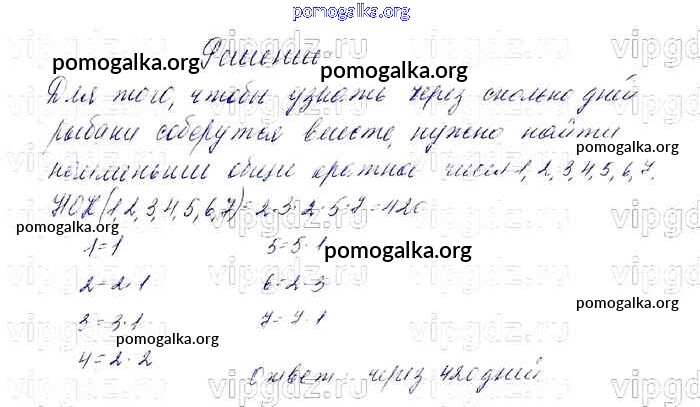 pomogalka.org
Решение
Для того, чтобы узнать через сколько дней
рыбаки соберутся вместе, нужно найти
наименьшее общее кратное чисел 1, 2, 3, 4, 5, 6, 7.
НОК(1,2,3,4,5,6,7)=2·3·2·5·7=420
1=1 5=5·1
2=2·1 6=2·3
3=3·1 7=7·1
4=2·2
Ответ: через 420 дней
pomogalka.org
pomogalka.org
pomogalka.org
pomogalka.org
pomogalka.org
pomogalka.org
pomogalka.org
pomogalka.org
vipgdz.ru
vipgdz.ru
vipgdz.ru